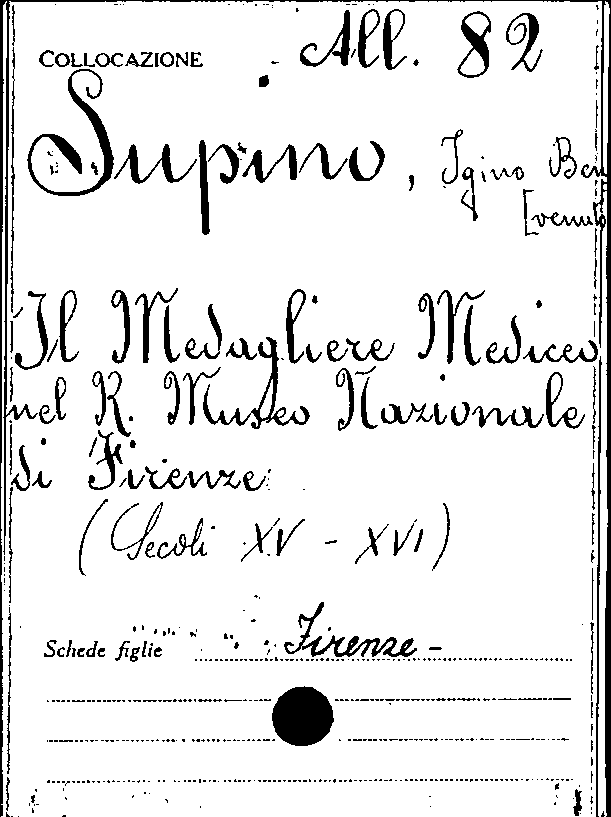 COLLOCAZIONE All. 82
Supino, Igino Ben
[venuto
Il Medagliere Mediceo
nel R. Museo Nazionale
di Firenze
(Secoli XV - XVI)
Schede figlie Firenze -